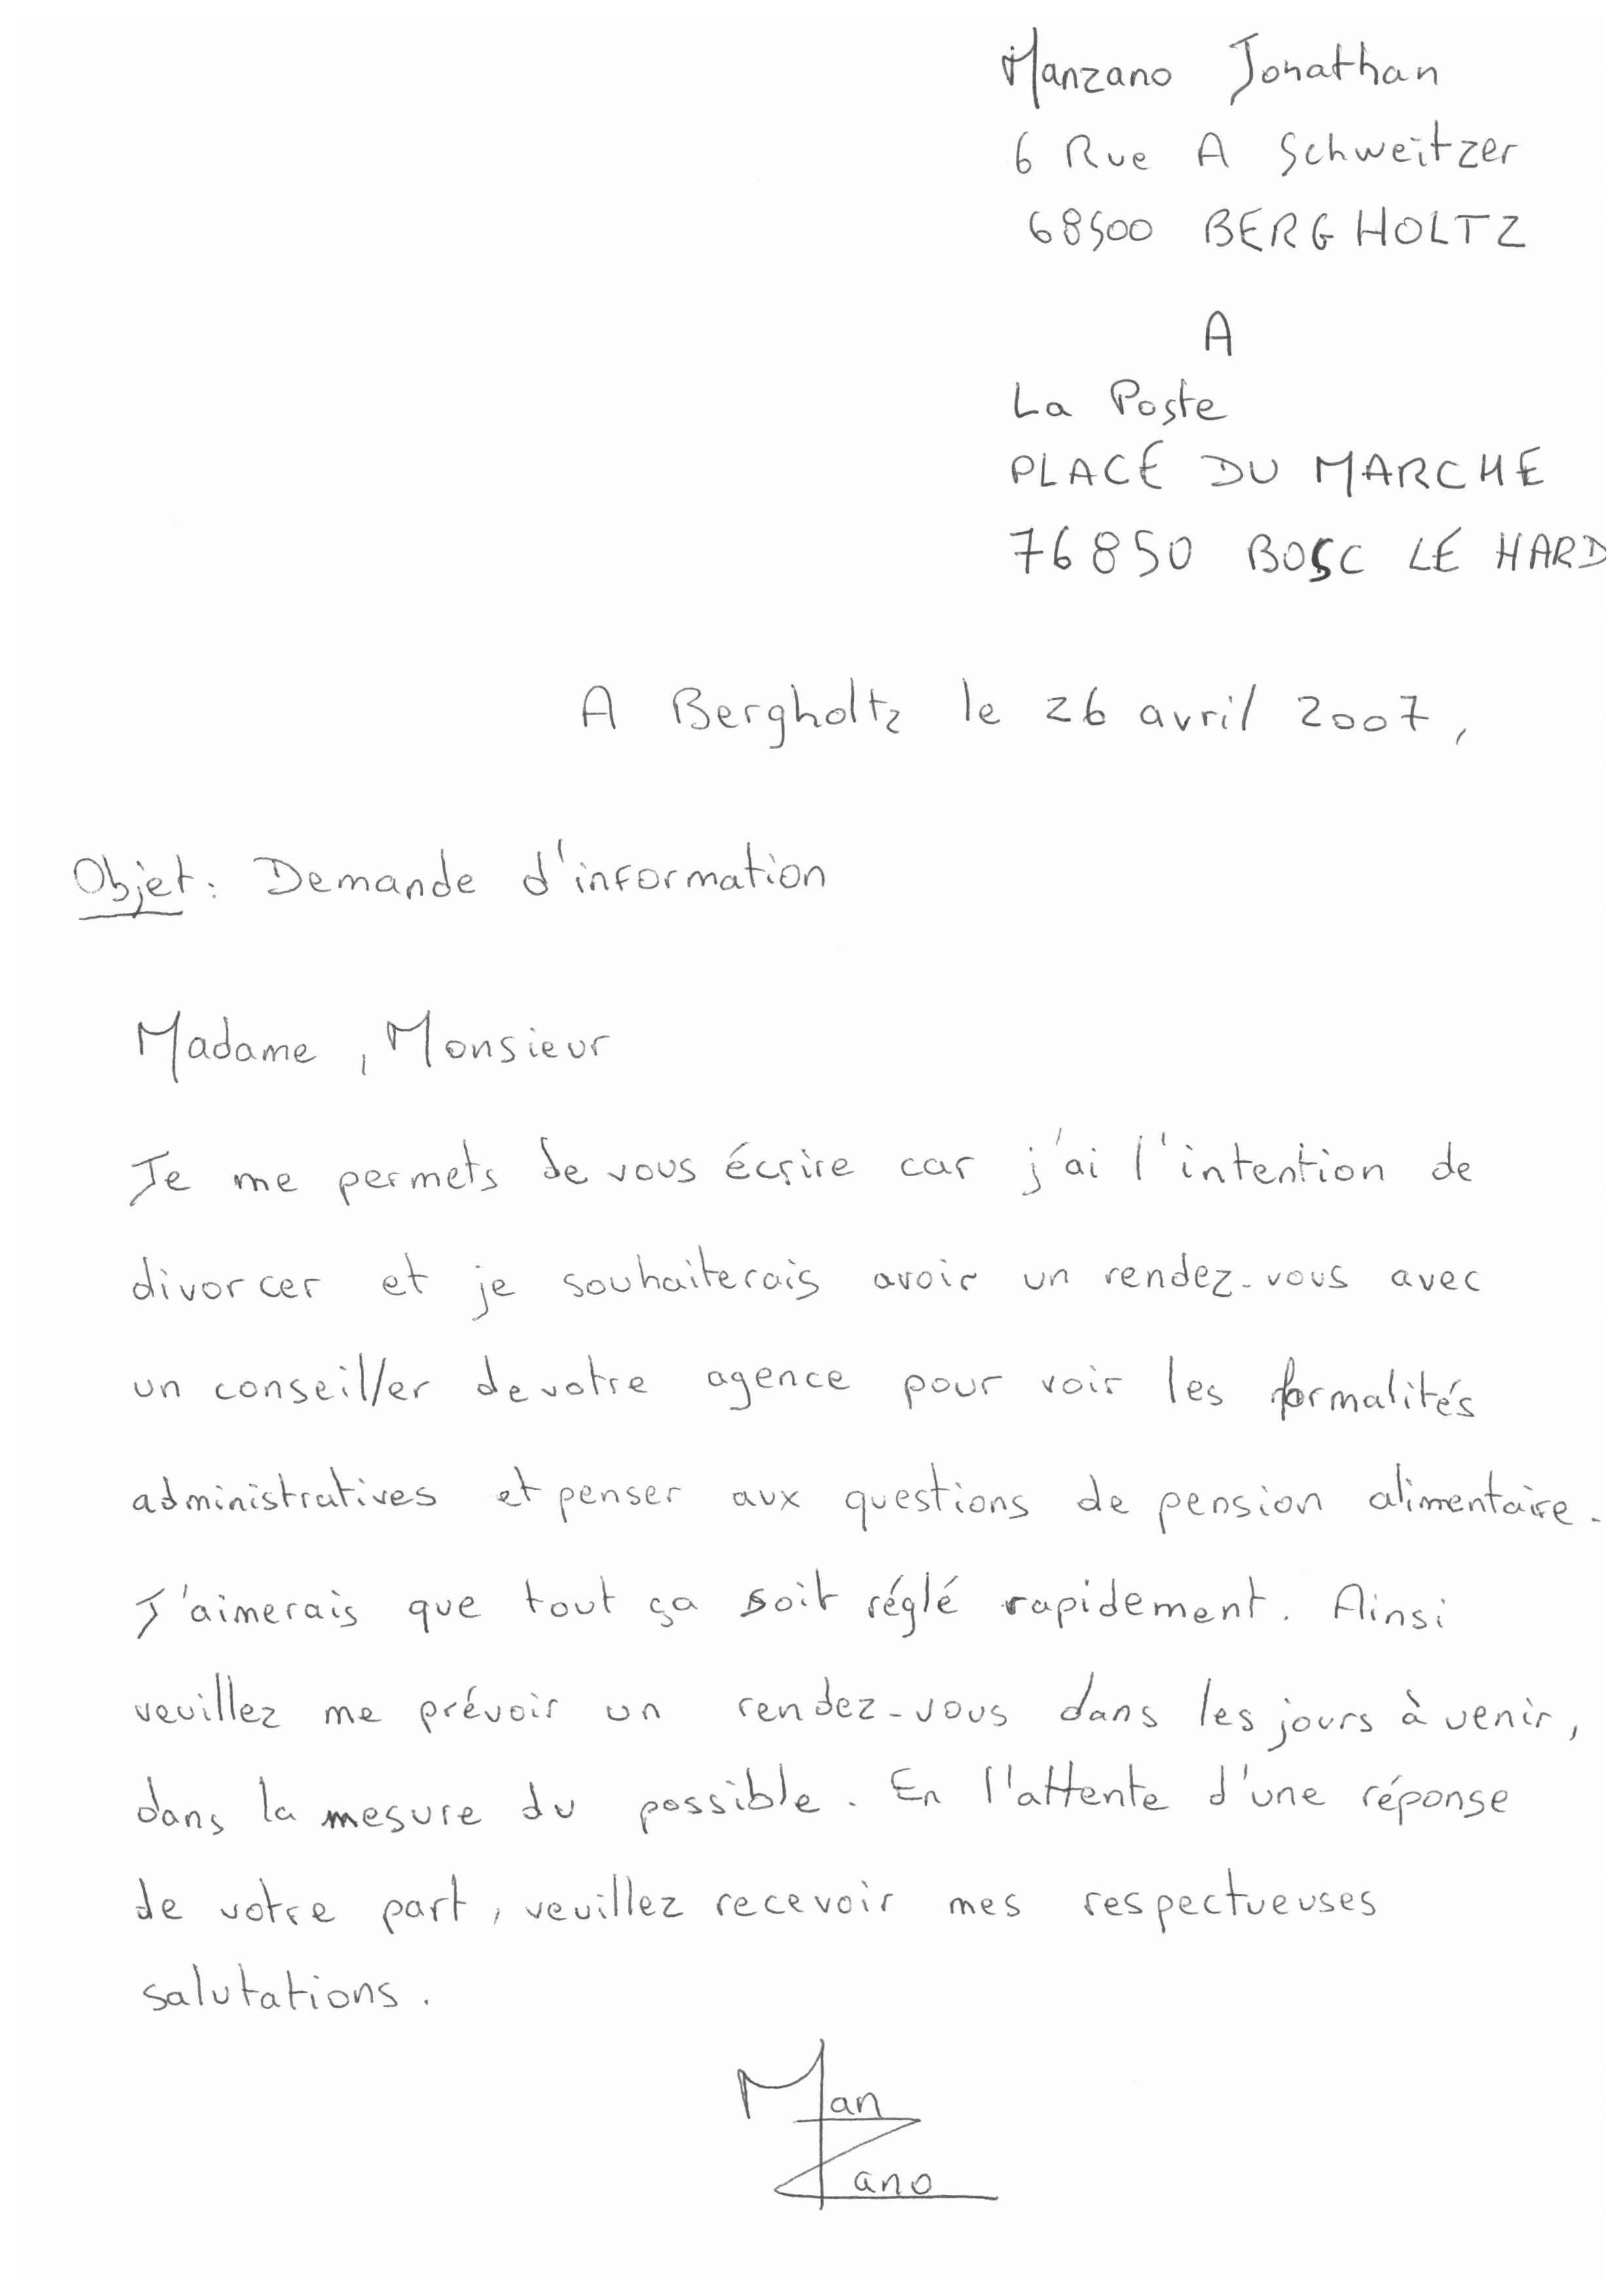 Manzano Jonathan
6 Rue A Schweitzer
68500 BERGHOLTZ
A
La Poste
PLACE DU MARCHE
76850 BOSC LE HARD
A Bergholtz le 26 avril 2007,
Objet: Demande d'information
Madame, Monsieur
Je me permets de vous écrire car j'ai l'intention de
divorcer et je souhaiterais avoir un rendez-vous avec
un conseiller de votre agence pour voir les formalités
administratives et penser aux questions de pension alimentaire.
J'aimerais que tout ça soit réglé rapidement. Ainsi
veuillez me prévoir un rendez-vous dans les jours à venir,
dans la mesure du possible. En l'attente d'une réponse
de votre part, veuillez recevoir mes respectueuses
salutations.
Man
Zano